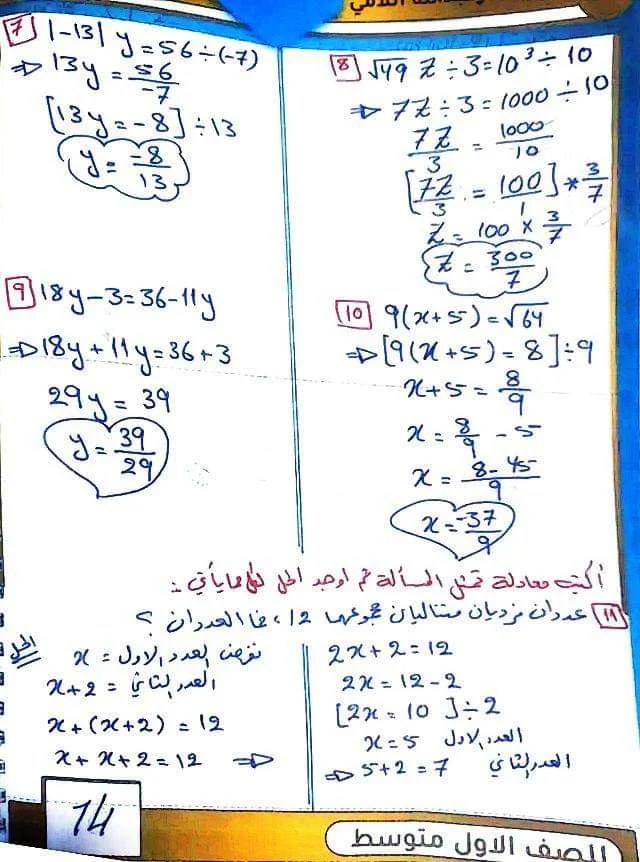 [7] |-13| y = 56 ÷ (-7)
⇒ 13y = 56/-7
[13y = -8] ÷ 13
y = -8/13
[8] √49 Z ÷ 3 = 10³ ÷ 10
⇒ 7Z ÷ 3 = 1000 ÷ 10
7Z/3 = 1000/10
[7Z/3 = 100/1] * 3/7
Z = 100 × 3/7
Z = 300/7
[9] 18y - 3 = 36 - 11y
⇒ 18y + 11y = 36 + 3
29y = 39
y = 39/29
[10] 9(x+5) = √64
⇒ [9(x+5) = 8] ÷ 9
x + 5 = 8/9
x = 8/9 - 5
x = 8-45/9
x = -37/9
أكتب معادلة تمثل المسألة ثم اوجد الحل لكل مما يأتي :-
[11] عددان فرديان متتاليان مجموعهما 12 ، فما العددان ؟
الحل
نفرض العدد الاول = x
العدد الثاني = x+2
x + (x+2) = 12
x + x + 2 = 12 ⇒
2x + 2 = 12
2x = 12 - 2
[2x = 10] ÷ 2
x = 5 العدد الاول
⇒ 5+2 = 7 العدد الثاني
14
الصف الاول متوسط